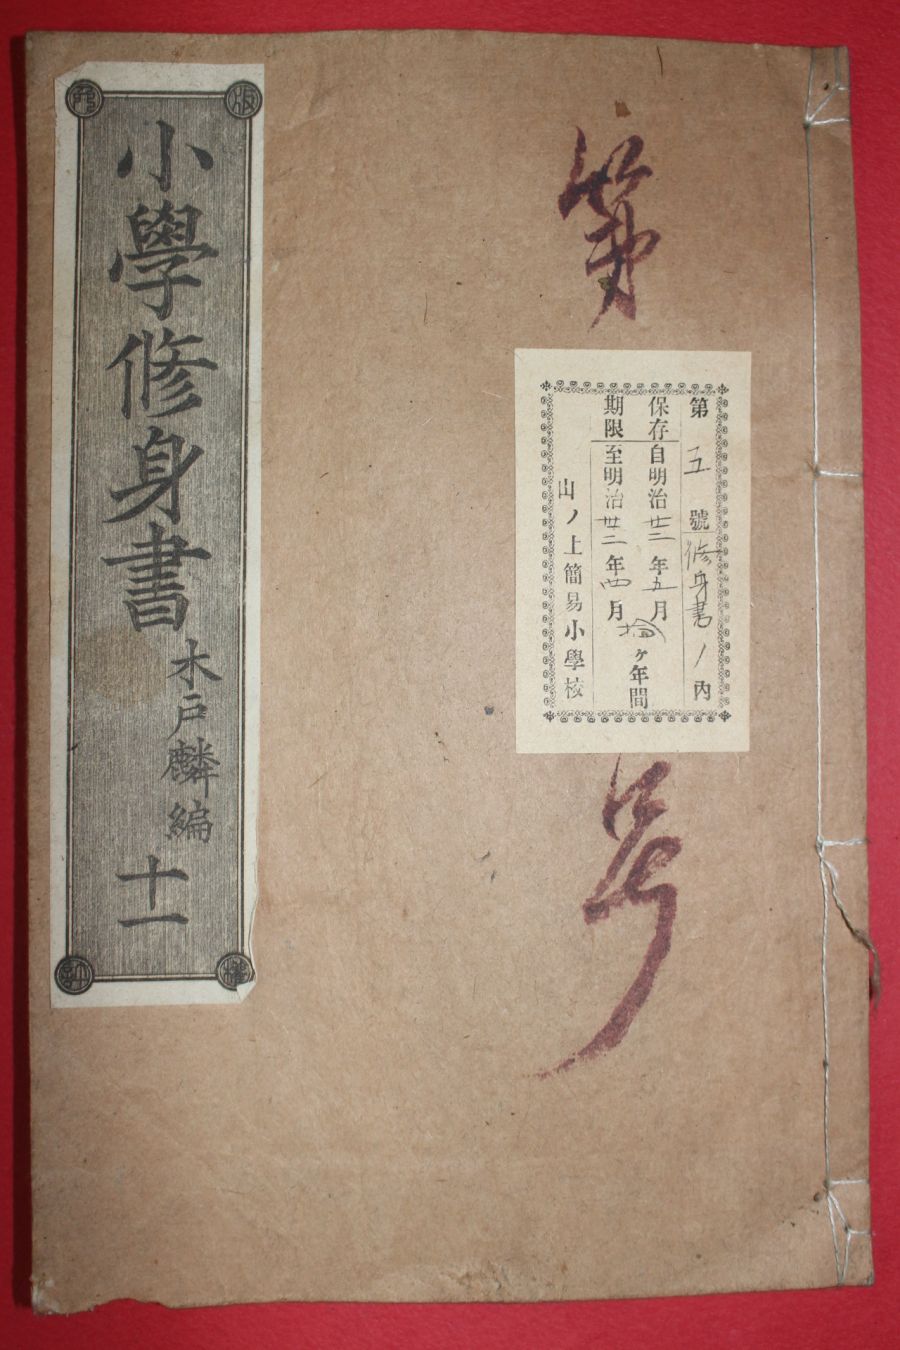 第
号
第 五 號 修身書ノ内
保存 自明治廿三年五月
期限 至明治卅三年四月
拾ヶ年間
山ノ上簡易小學校
小學修身書
木戸麟編
十一